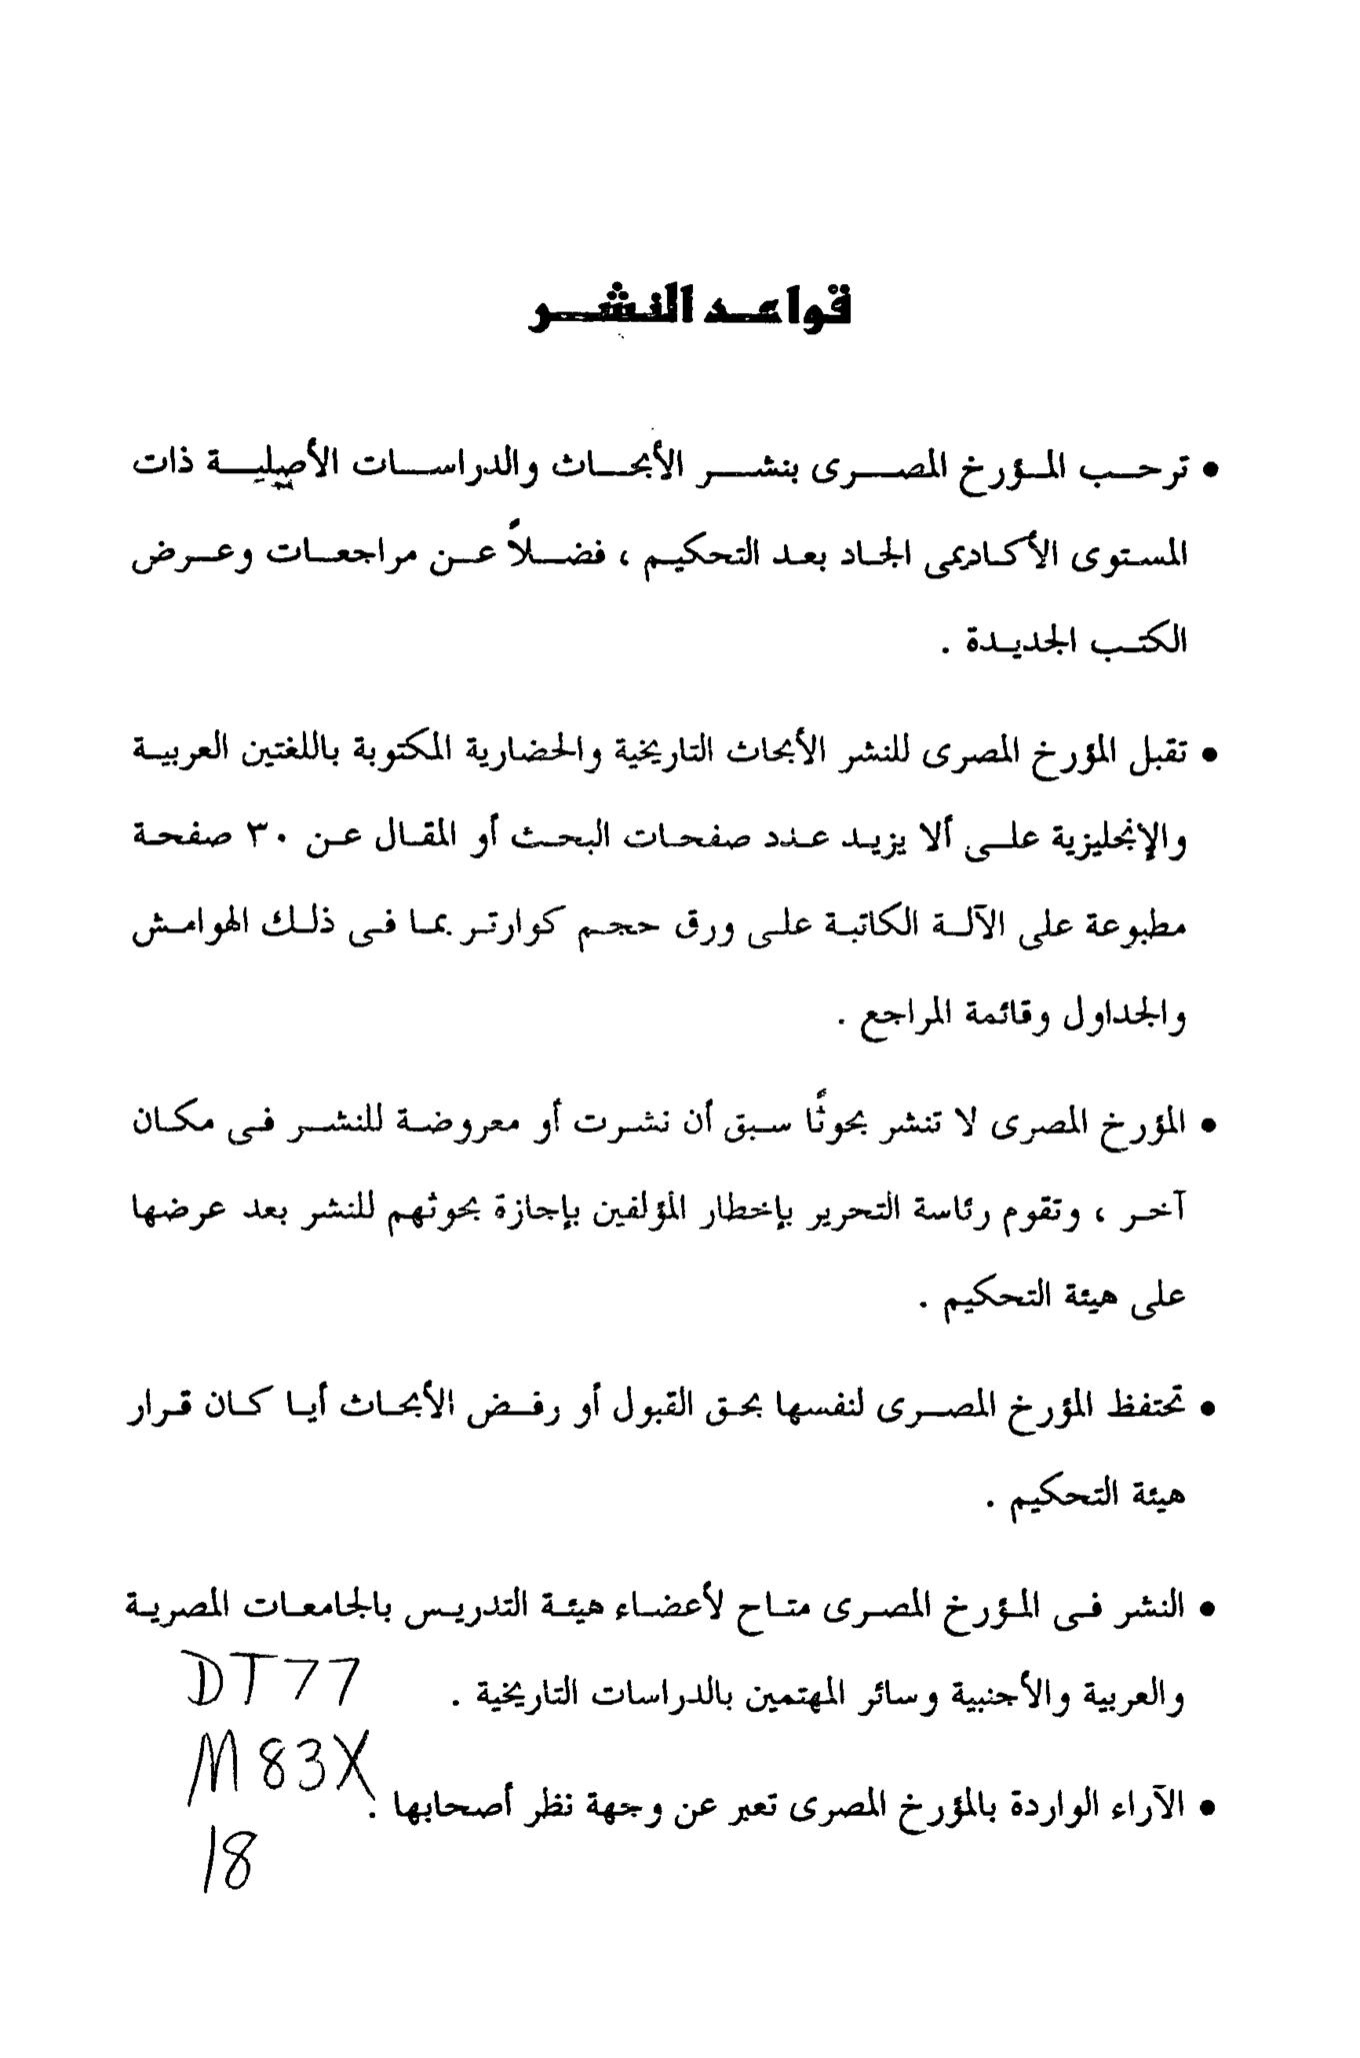 قواعد النشر
• ترحب المؤرخ المصرى بنشر الأبحاث والدراسات الأصيلية ذات
المستوى الأكاديمى الجاد بعد التحكيم ، فضلاً عن مراجعات وعرض
الكتب الجديدة .
• تقبل المؤرخ المصرى للنشر الأبحاث التاريخية والحضارية المكتوبة باللغتين العربية
والإنجليزية على ألا يزيد عدد صفحات البحث أو المقال عن ٣٠ صفحة
مطبوعة على الآلة الكاتبة على ورق حجم كوارتر بما فى ذلك الهوامش
والجداول وقائمة المراجع .
• المؤرخ المصرى لا تنشر بحوثًا سبق أن نشرت أو معروضة للنشر فى مكان
آخر ، وتقوم رئاسة التحرير بإخطار المؤلفين بإجازة بحوثهم للنشر بعد عرضها
على هيئة التحكيم .
• تحتفظ المؤرخ المصرى لنفسها بحق القبول أو رفض الأبحاث أيا كان قرار
هيئة التحكيم .
• النشر فى المؤرخ المصرى متاح لأعضاء هيئة التدريس بالجامعات المصرية
والعربية والأجنبية وسائر المهتمين بالدراسات التاريخية .
DT77
M83X
• الآراء الواردة بالمؤرخ المصرى تعبر عن وجهة نظر أصحابها .
18